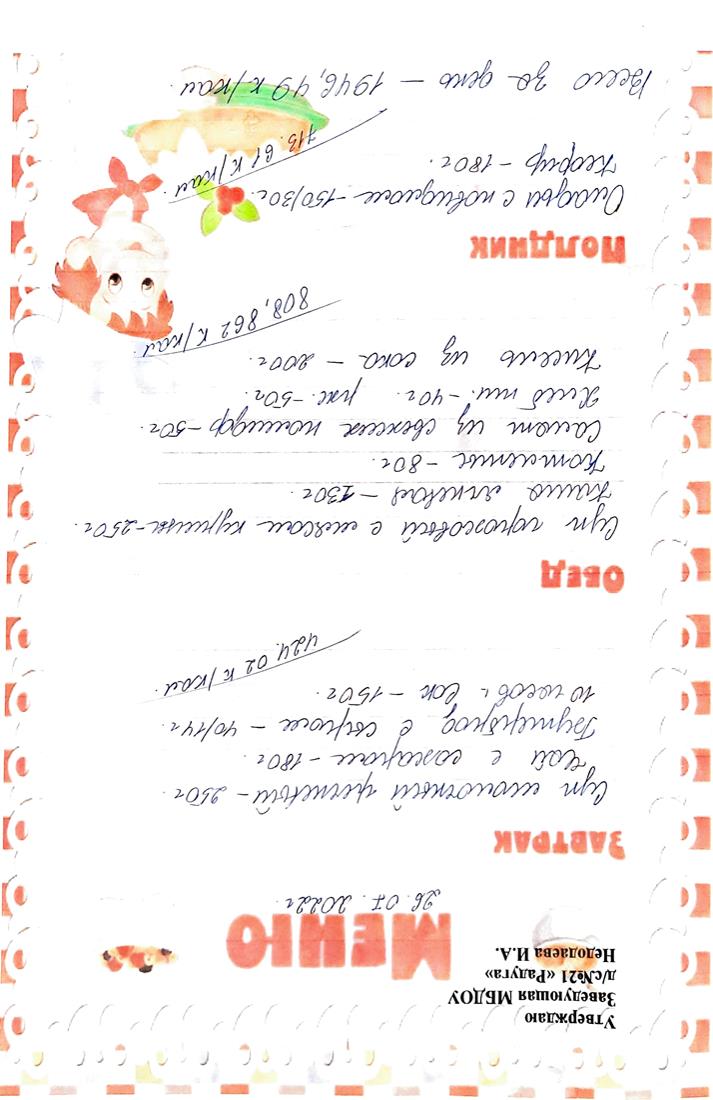 Утверждаю
Заведующая МБДОУ
д/с№21 «Радуга»
Недодаева И.А.
Меню
26. 07. 2022г.
Завтрак
Суп молочный гречневый - 250г
Чай с сахаром - 180г
Бутерброд с сыром - 40/14г
10 часов. Сок - 150г
424.02 к/кал
Обед
Суп гороховый с мясом курицы - 250г
Каша ячневая - 130г
Котлеты - 80г.
Салат из свежих помидор - 50г.
Хлеб пш. - 40г. рж. - 50г
Кисель из сока - 200г.
808,862 к/кал
Полдник
Оладьи с повидлом - 150/30г.
Кефир - 180г.
713.61 к/кал
Всего за день - 1946,49 к/кал